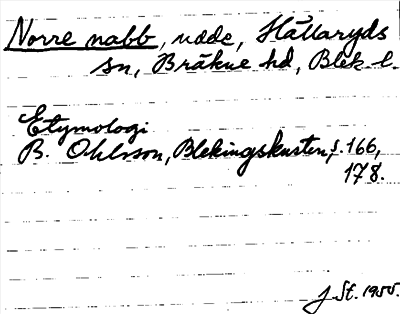 Norre nabb, udde, Hällaryds
sn, Bräkne hd, Blek. l.
Etymologi
B. Ohlsson, Blekingskusten, s. 166,
178.
J St. 1955.